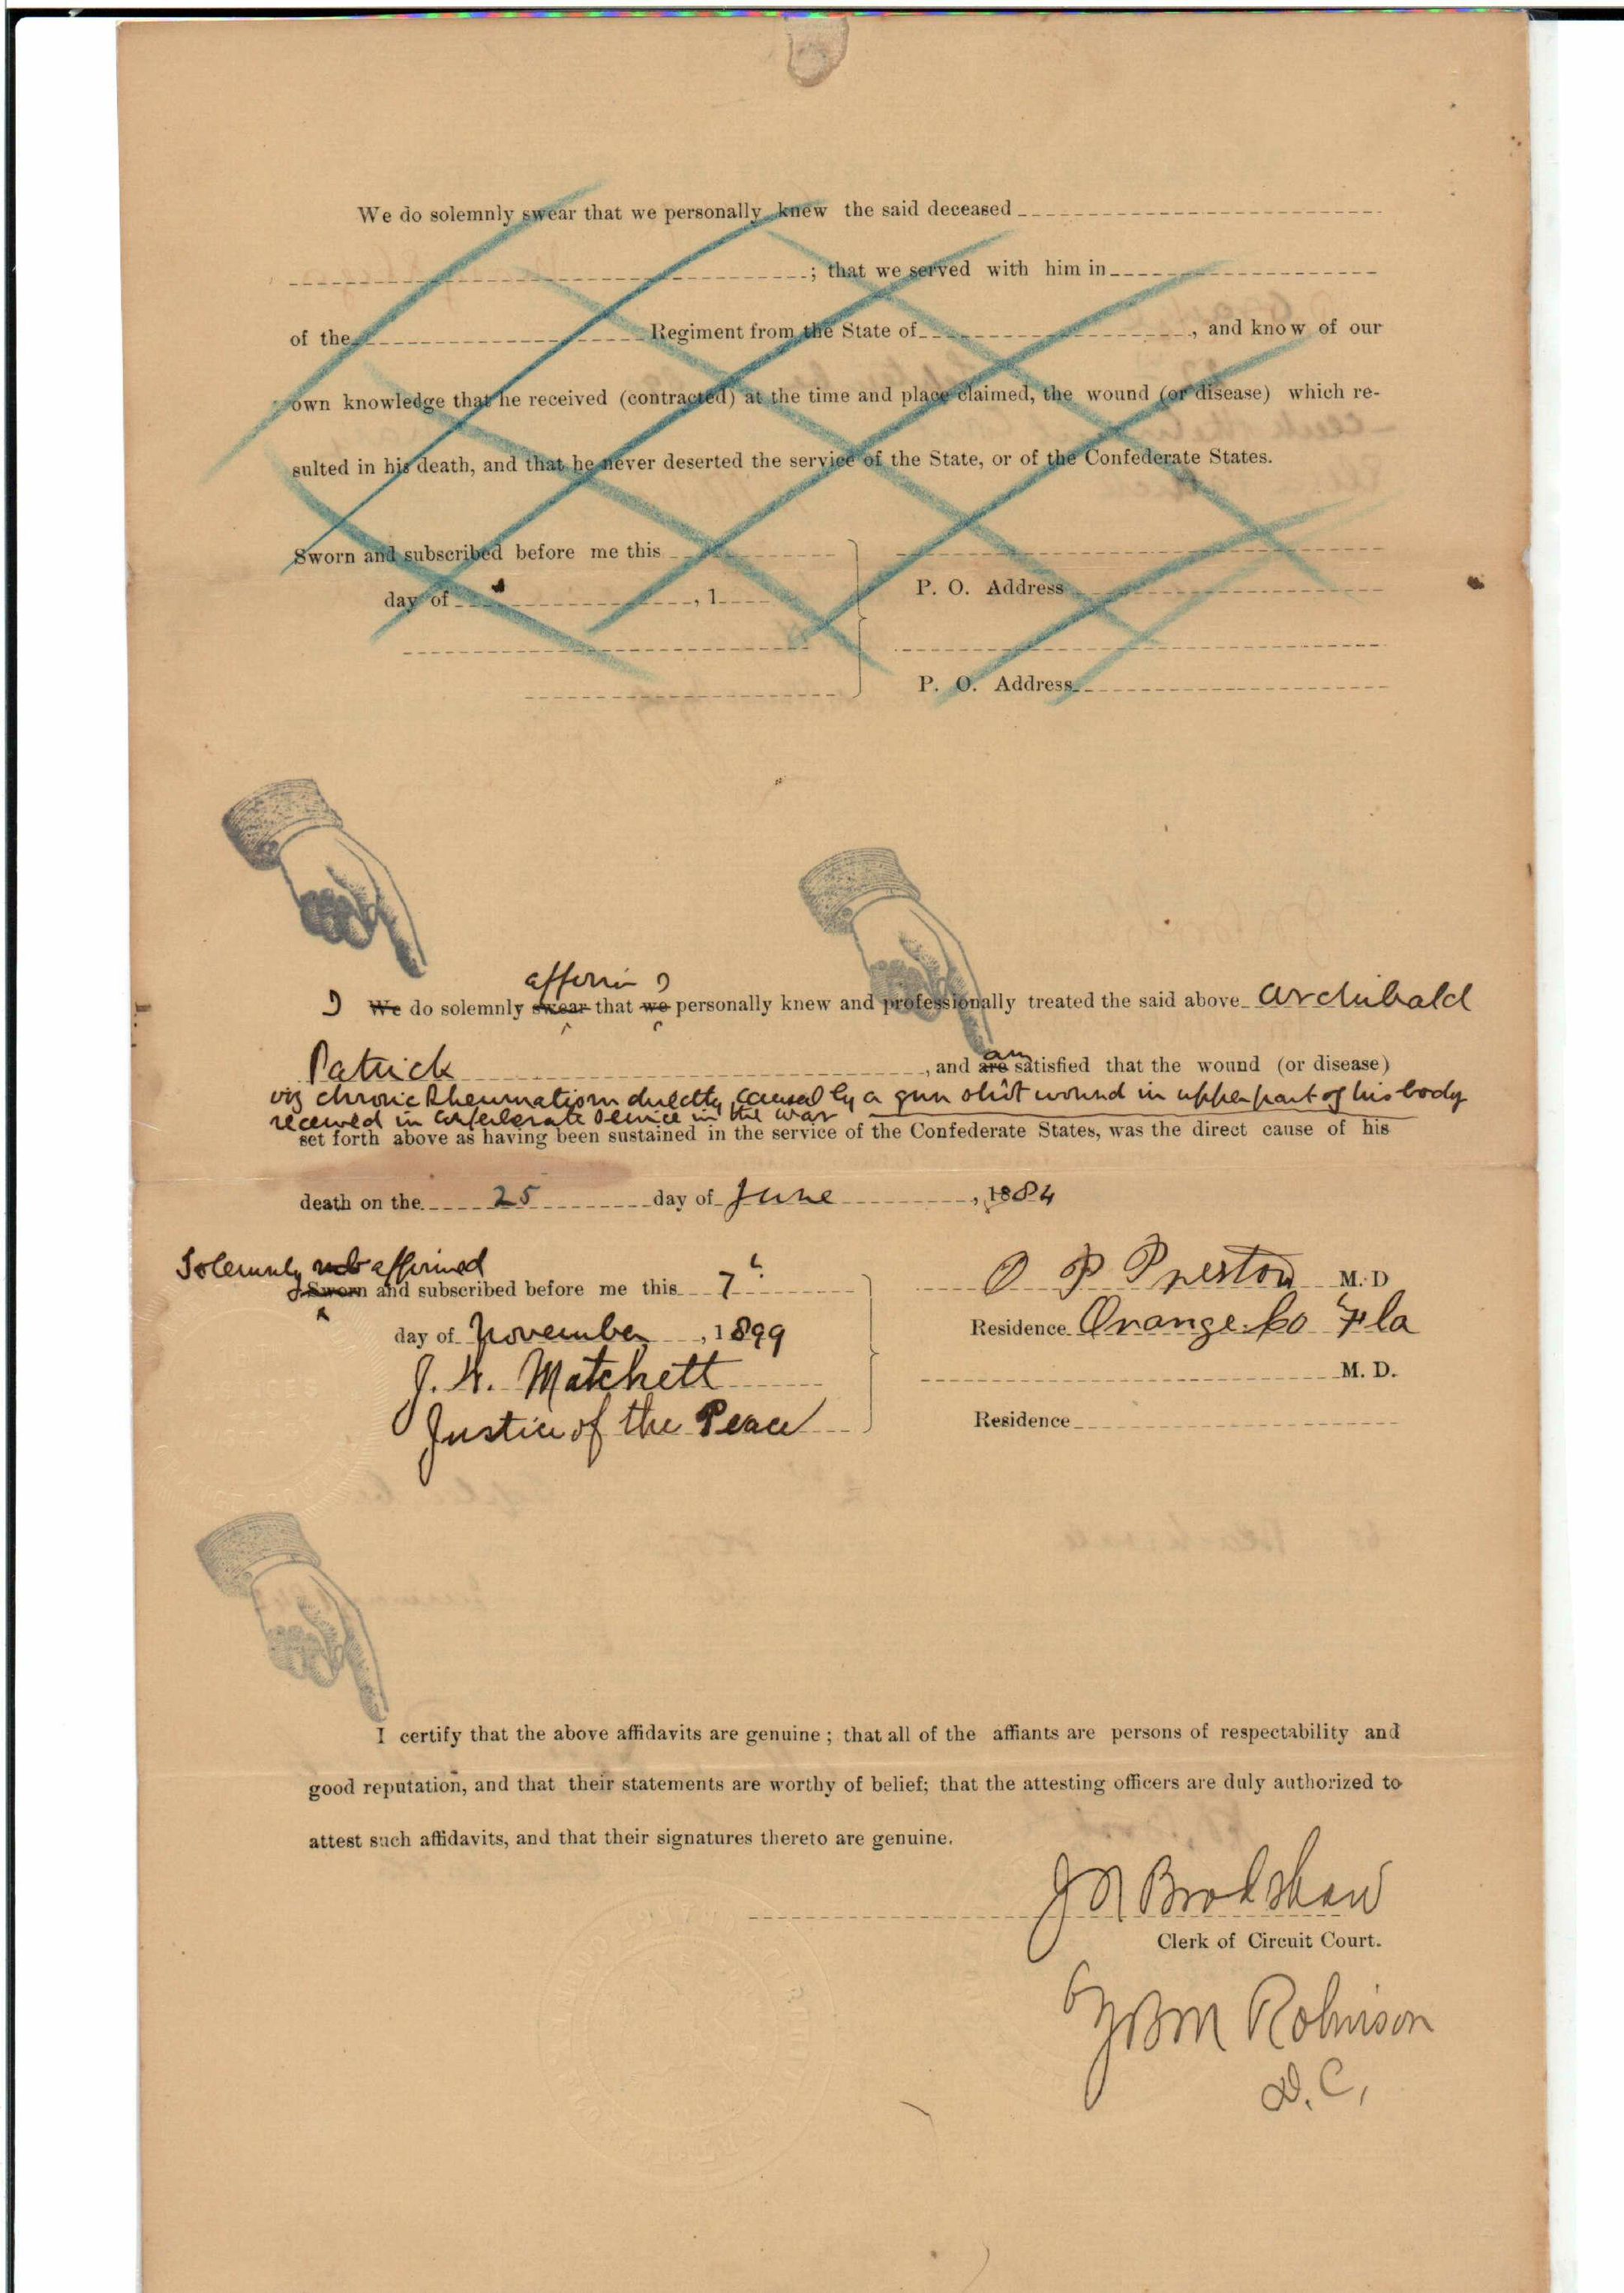 We do solemnly swear that we personally knew the said deceased
; that we served with him in
of the Regiment from the State of , and know of our
own knowledge that he received (contracted) at the time and place claimed, the wound (or disease) which re-
sulted in his death, and that he never deserted the service of the State, or of the Confederate States.
Sworn and subscribed before me this
day of , 1
P. O. Address
P. O. Address
affirm I
I We do solemnly swear that we personally knew and professionally treated the said above Archibald
am
Patrick , and are satisfied that the wound (or disease)
viz chronic Rheumatism directly caused by a gun shot wound in upper part of his body
received in Confederate Service in the war
set forth above as having been sustained in the service of the Confederate States, was the direct cause of his
death on the 25 day of June , 1884
Solemnly affirmed
Sworn and subscribed before me this 7
day of November , 1899
J. H. Matchett
Justice of the Peace
O P Preston M. D
Residence Orange Co Fla
M. D.
Residence
I certify that the above affidavits are genuine ; that all of the affiants are persons of respectability and
good reputation, and that their statements are worthy of belief; that the attesting officers are duly authorized to
attest such affidavits, and that their signatures thereto are genuine.
J N Bradshaw
Clerk of Circuit Court.
by B M Robinson
D. C,